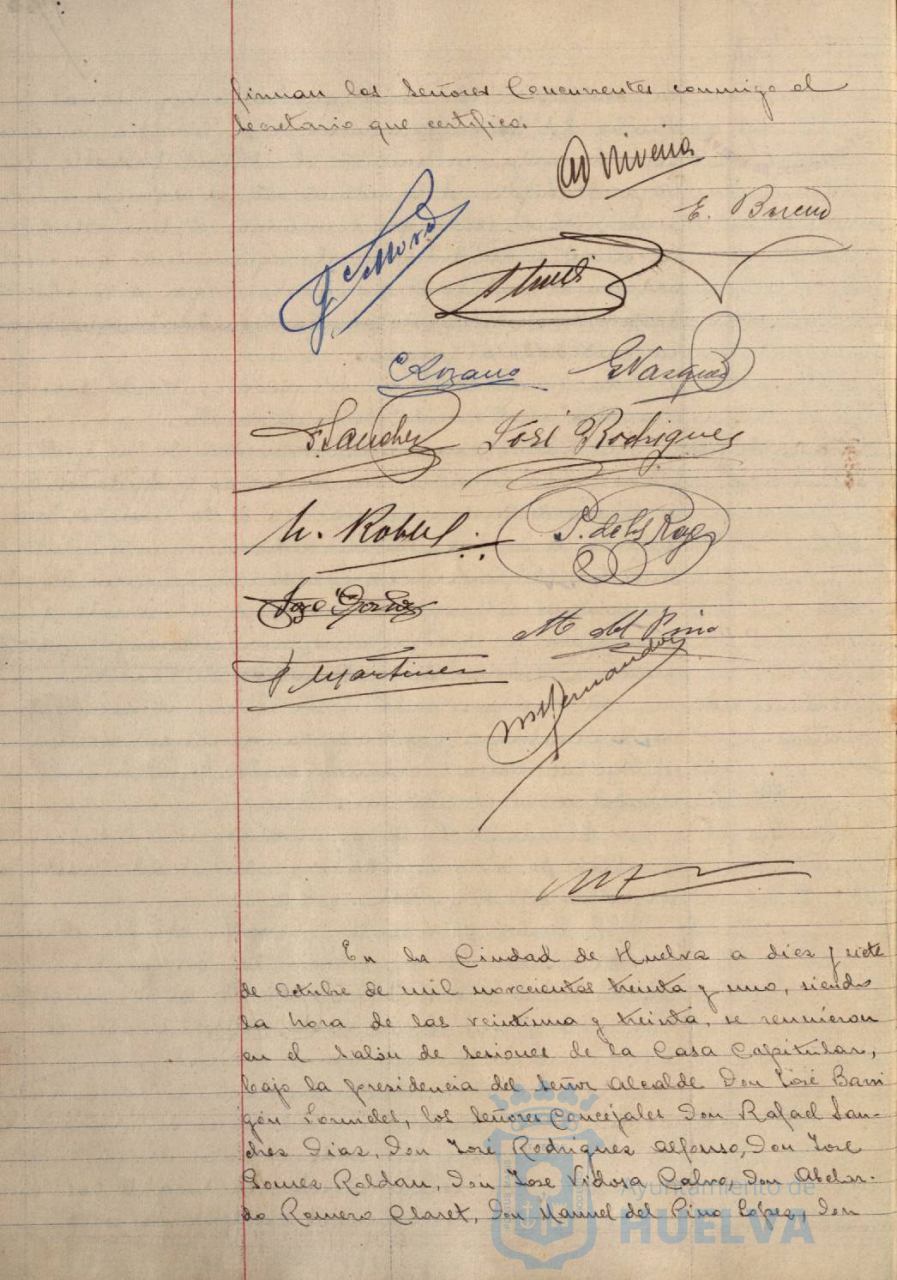 firman los Señores Concurrentes conmigo el
Secretario que certifico.
E.
Lozano
G Vazquez
F. Sanchez
José Rodriguez
P. de los
M. del Pino
Martinez
M Hernandez
En la Ciudad de Huelva a diez y siete
de Octubre de mil novecientos treinta y uno, siendo
la hora de las veintiuna y treinta, se reunieron
en el Salón de Sesiones de la Casa Capitular,
bajo la presidencia del Señor Alcalde Don José Barri
gón Fornieles, los Señores Concejales Don Rafael San-
chez Diaz, Don José Rodriguez Alfonso, Don José
Gomez Roldan, Don Jose Vidosa Calvo, Don Abelar-
do Romero Claret, Don Manuel del Pino López, Don
Ayuntamiento de
HUELVA